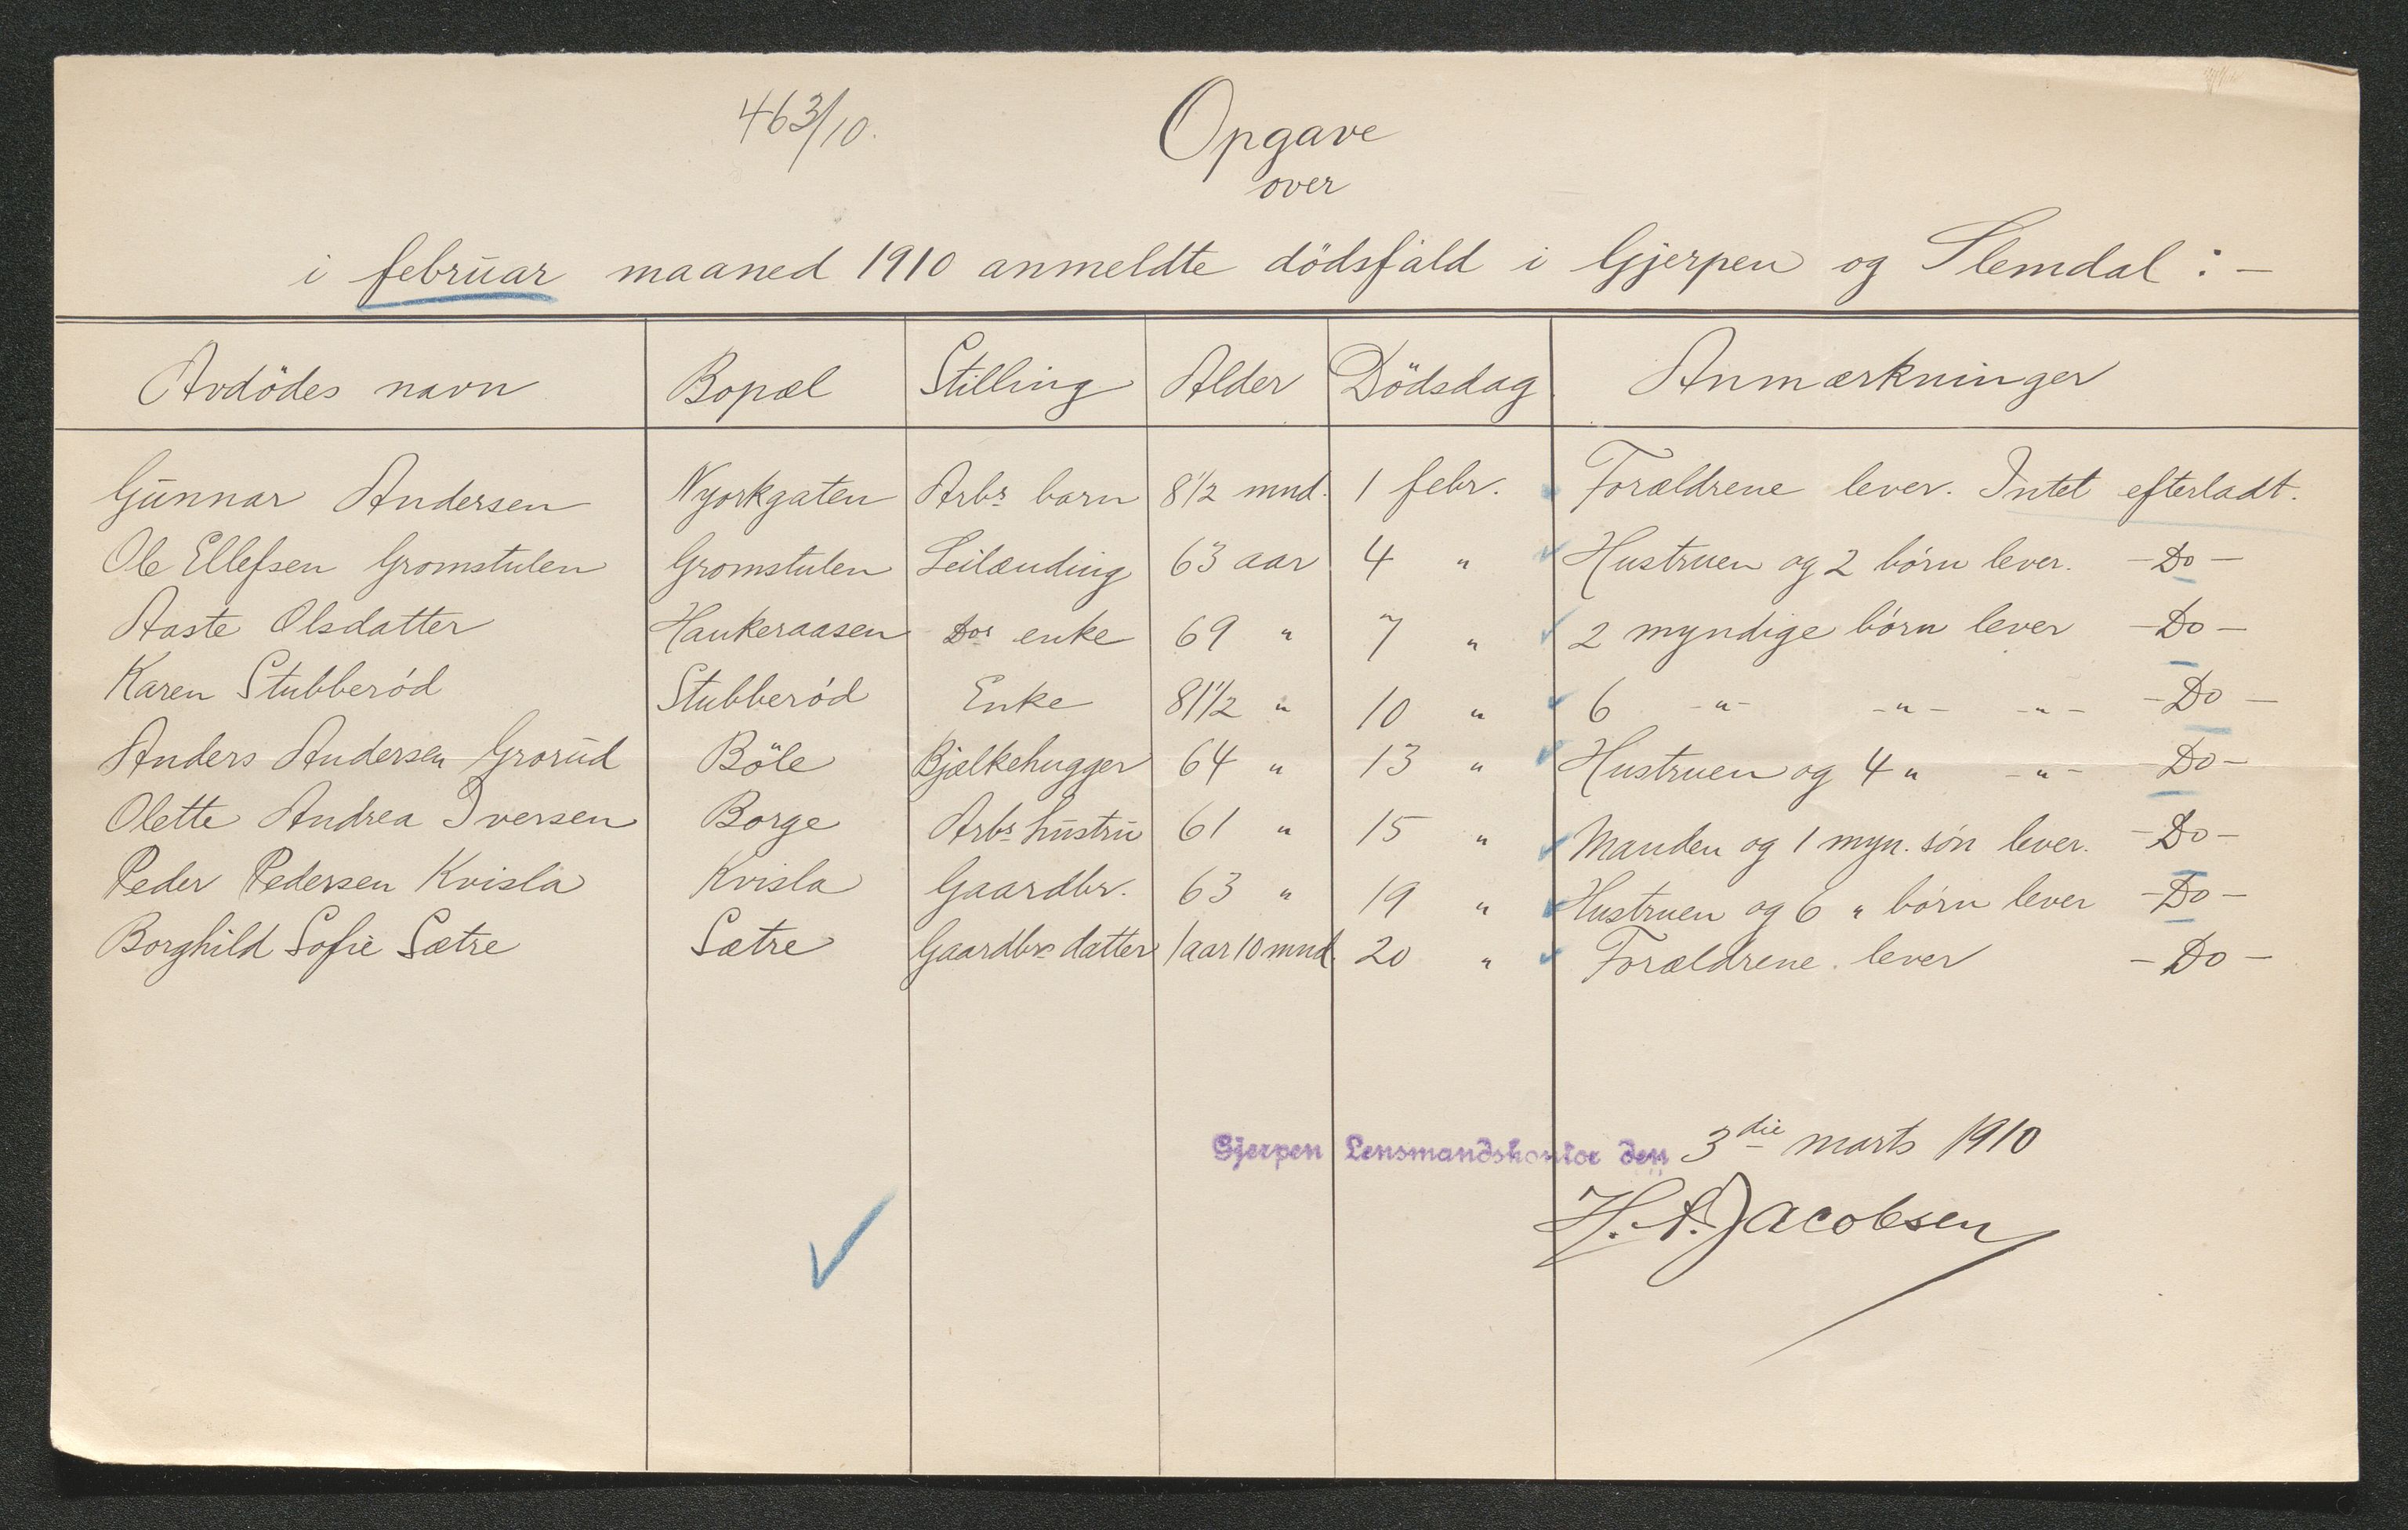 463/10.
Opgave
over
i februar maaned 1910 anmeldte dödsfald i Gjerpen og Slemdal : —
Avdödes navn Bopæl Stilling Alder Dödsdag Anmærkninger
Gunnar Andersen Nyorkgaten Arbr barn 8 1/2 mnd. 1 febr. Forældrene lever. Intet efterladt.
Ole Ellefsen Gromstulen Gromstulen Leilænding 63 aar 4 " Hustruen og 2 börn lever. — Do —
Aaste Olsdatter Haukeraasen Dos enke 69 " 7 " 2 myndige börn lever — Do —
Karen Stubberöd Stubberöd Enke 81 1/2 " 10 " 6 -"- -"- -"- — Do —
Anders Andersen Grorud Böle Bjælkehugger 64 " 13 " Hustruen og 4 " -"- — Do —
Olette Andrea Iversen Borge Arbs hustru 61 " 15 " Manden og 1 myn. sön lever. — Do —
Peder Pedersen Kvisla Kvisla Gaardbr. 63 " 19 " Hustruen og 6 " börn lever — Do —
Borghild Sofie Sætre Sætre Gaardbrs datter 1 aar 10 mnd. 20 " Forældrene lever — Do —
Gjerpen Lensmandskontor den 3die marts 1910
H. A. Jacobsen